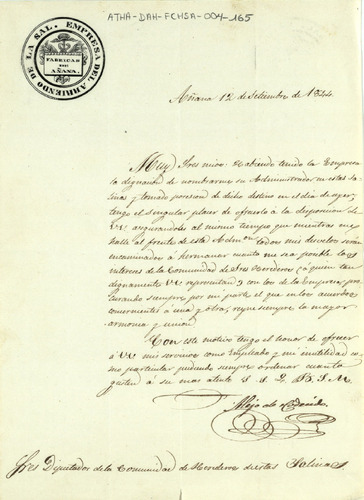 ATHA-DAH-FCHSA-004-165
EMPRESA DEL ARRIENDO DE LA SAL.
FABRICAS
DE
AÑANA.
Añana 12 de Setiembre de 1844
Muy Sres mios: Habiendo tenido la Empresa
la dignacion de nombrarme su Administrador en estas Sa-
linas y tomado posesion de dicho destino en el dia de ayer,
tengo el singular placer de ofrecerlo a la disposicion de
VV asegurandoles al mismo tiempo que mientras me
halle al frente de esta Admon todos mis desvelos serán
encaminados a hermanar cuanto me sea posible los in-
tereses de la Comunidad de Sres Herederos (a quien tan
dignamente VV representan) y con los de la Empresa, pro-
curando siempre por mi parte el que en los acuerdos
concernientes a una y otra, reyne siempre la mayor
armonia y union.
Con este motivo tengo el honor de ofrecer
á VV mis servicios como Empleado y mi inutilidad co-
mo particular pudiendo siempre ordenar cuanto
gusten a su mas atento S. S. Q. B. S. M.
Alejo de
Sres Diputados de la Comunidad de Herederos de estas Salinas